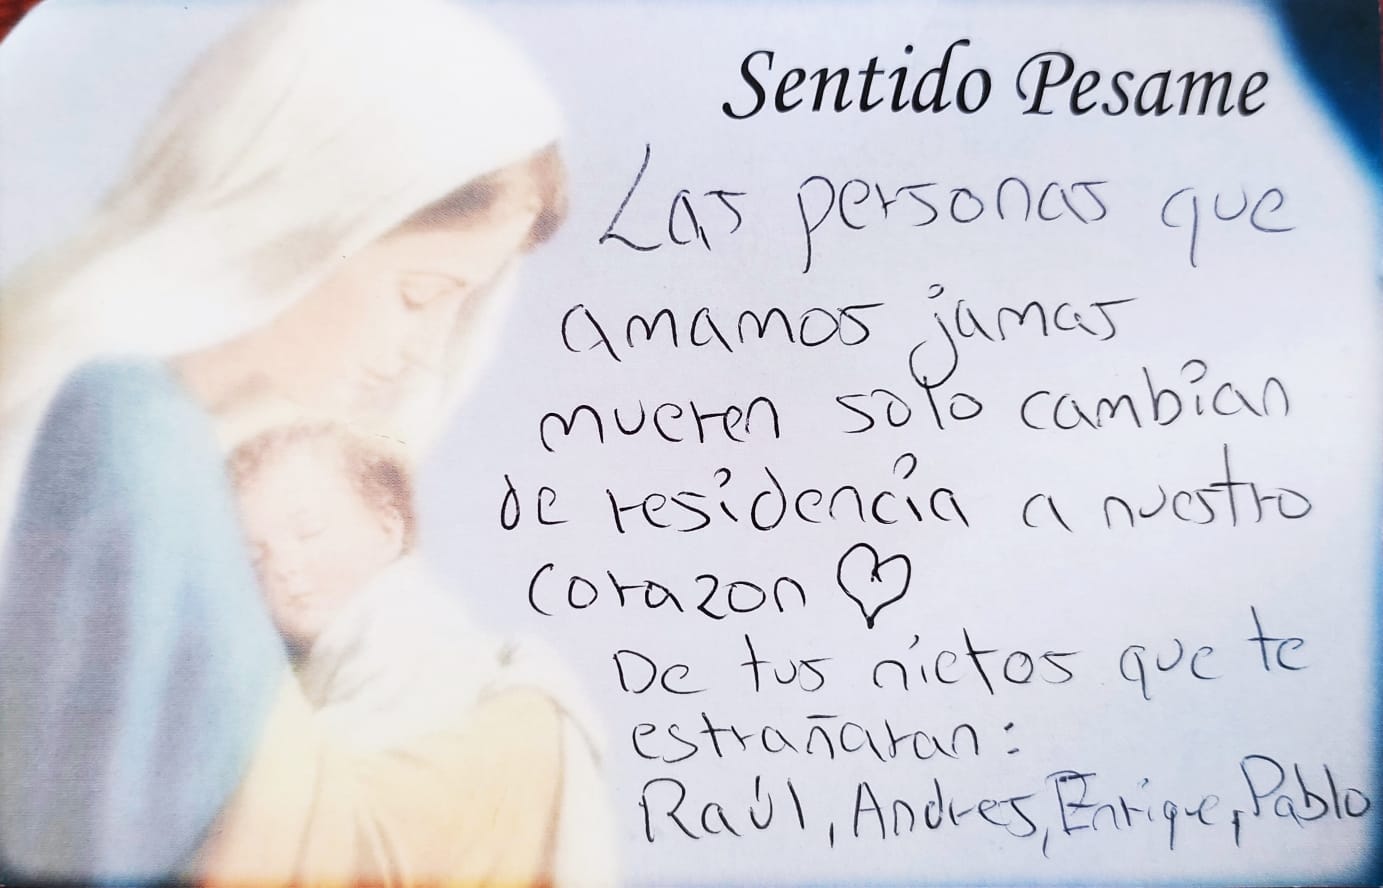 Sentido Pesame
Las personas que
amamos jamas
mueren solo cambian
de residencia a nuestro
corazon
De tus nietos que te
estrañaran:
Raúl, Andres, Enrique, Pablo